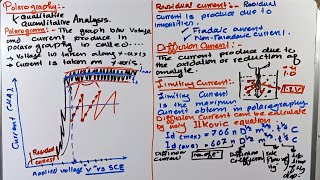 Polarography:-
Qualitative
Quantitative Analysis.
Polarograms:- The graph b/w Voltage
and current produce in
polarography is called
→ Voltage is taken along x-axis
→ Current is taken on y-axis.
Current (MA)
Residual
Current
Applied voltage V vs SCE
Residual current:- Residual
current is produce due to
impurities
→ Fradaic current
→ Non-Faradaic current.
Diffusion Current:-
The current produce due
to the oxidation or reduction of
analyte.
Limiting Current:-
Limiting Current
is the maximum
current obtain in polarography.
Diffusion Current can be calculate
by using Ilkovic equation
Id (max) = 706 n D½ m⅔ t⅙ C
Id (ave) = 607 n D½ m⅔ t⅙ C
Diffusion
current
Diffusion
coefficient